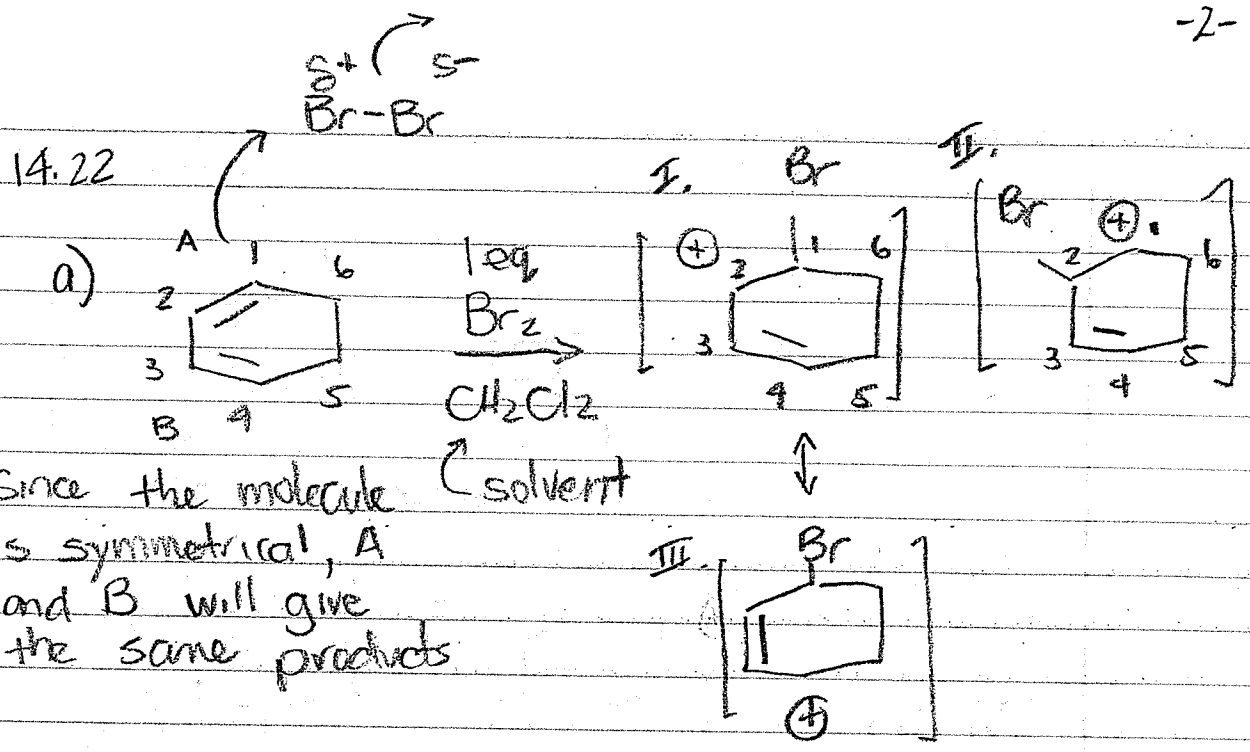 -2-
δ+ δ-
Br-Br
14.22
I. Br
II.
a)
A 1 6
2
3
B 4 5
1 eq
Br2
CH2Cl2
solvent
+ 2 1 6
3 4 5
Br + 1
2 6
3 4 5
Since the molecule
s symmetrical, A
and B will give
the same products
III. Br
+